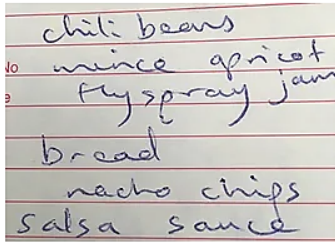 chili beans
mince apricot
fly spray jam
bread
nacho chips
salsa sauce